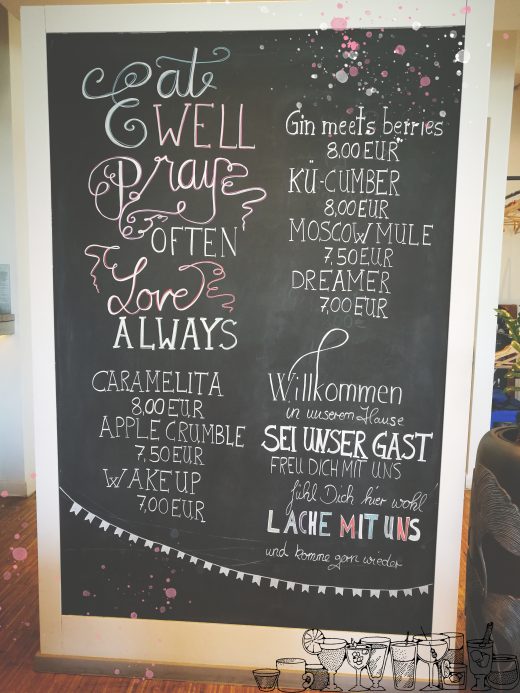 Eat
& WELL
Pray
OFTEN
Love
ALWAYS
CARAMELITA
8,00 EUR
APPLE CRUMBLE
7,50 EUR
WAKE UP
7,00 EUR
Gin meets berries
8,00 EUR
KÜ-CUMBER
8,00 EUR
MOSCOW MULE
7,50 EUR
DREAMER
7,00 EUR
Willkommen
in unserem Hause
SEI UNSER GAST
FREU DICH MIT UNS
fühl Dich hier wohl
LACHE MIT UNS
und komme gern wieder